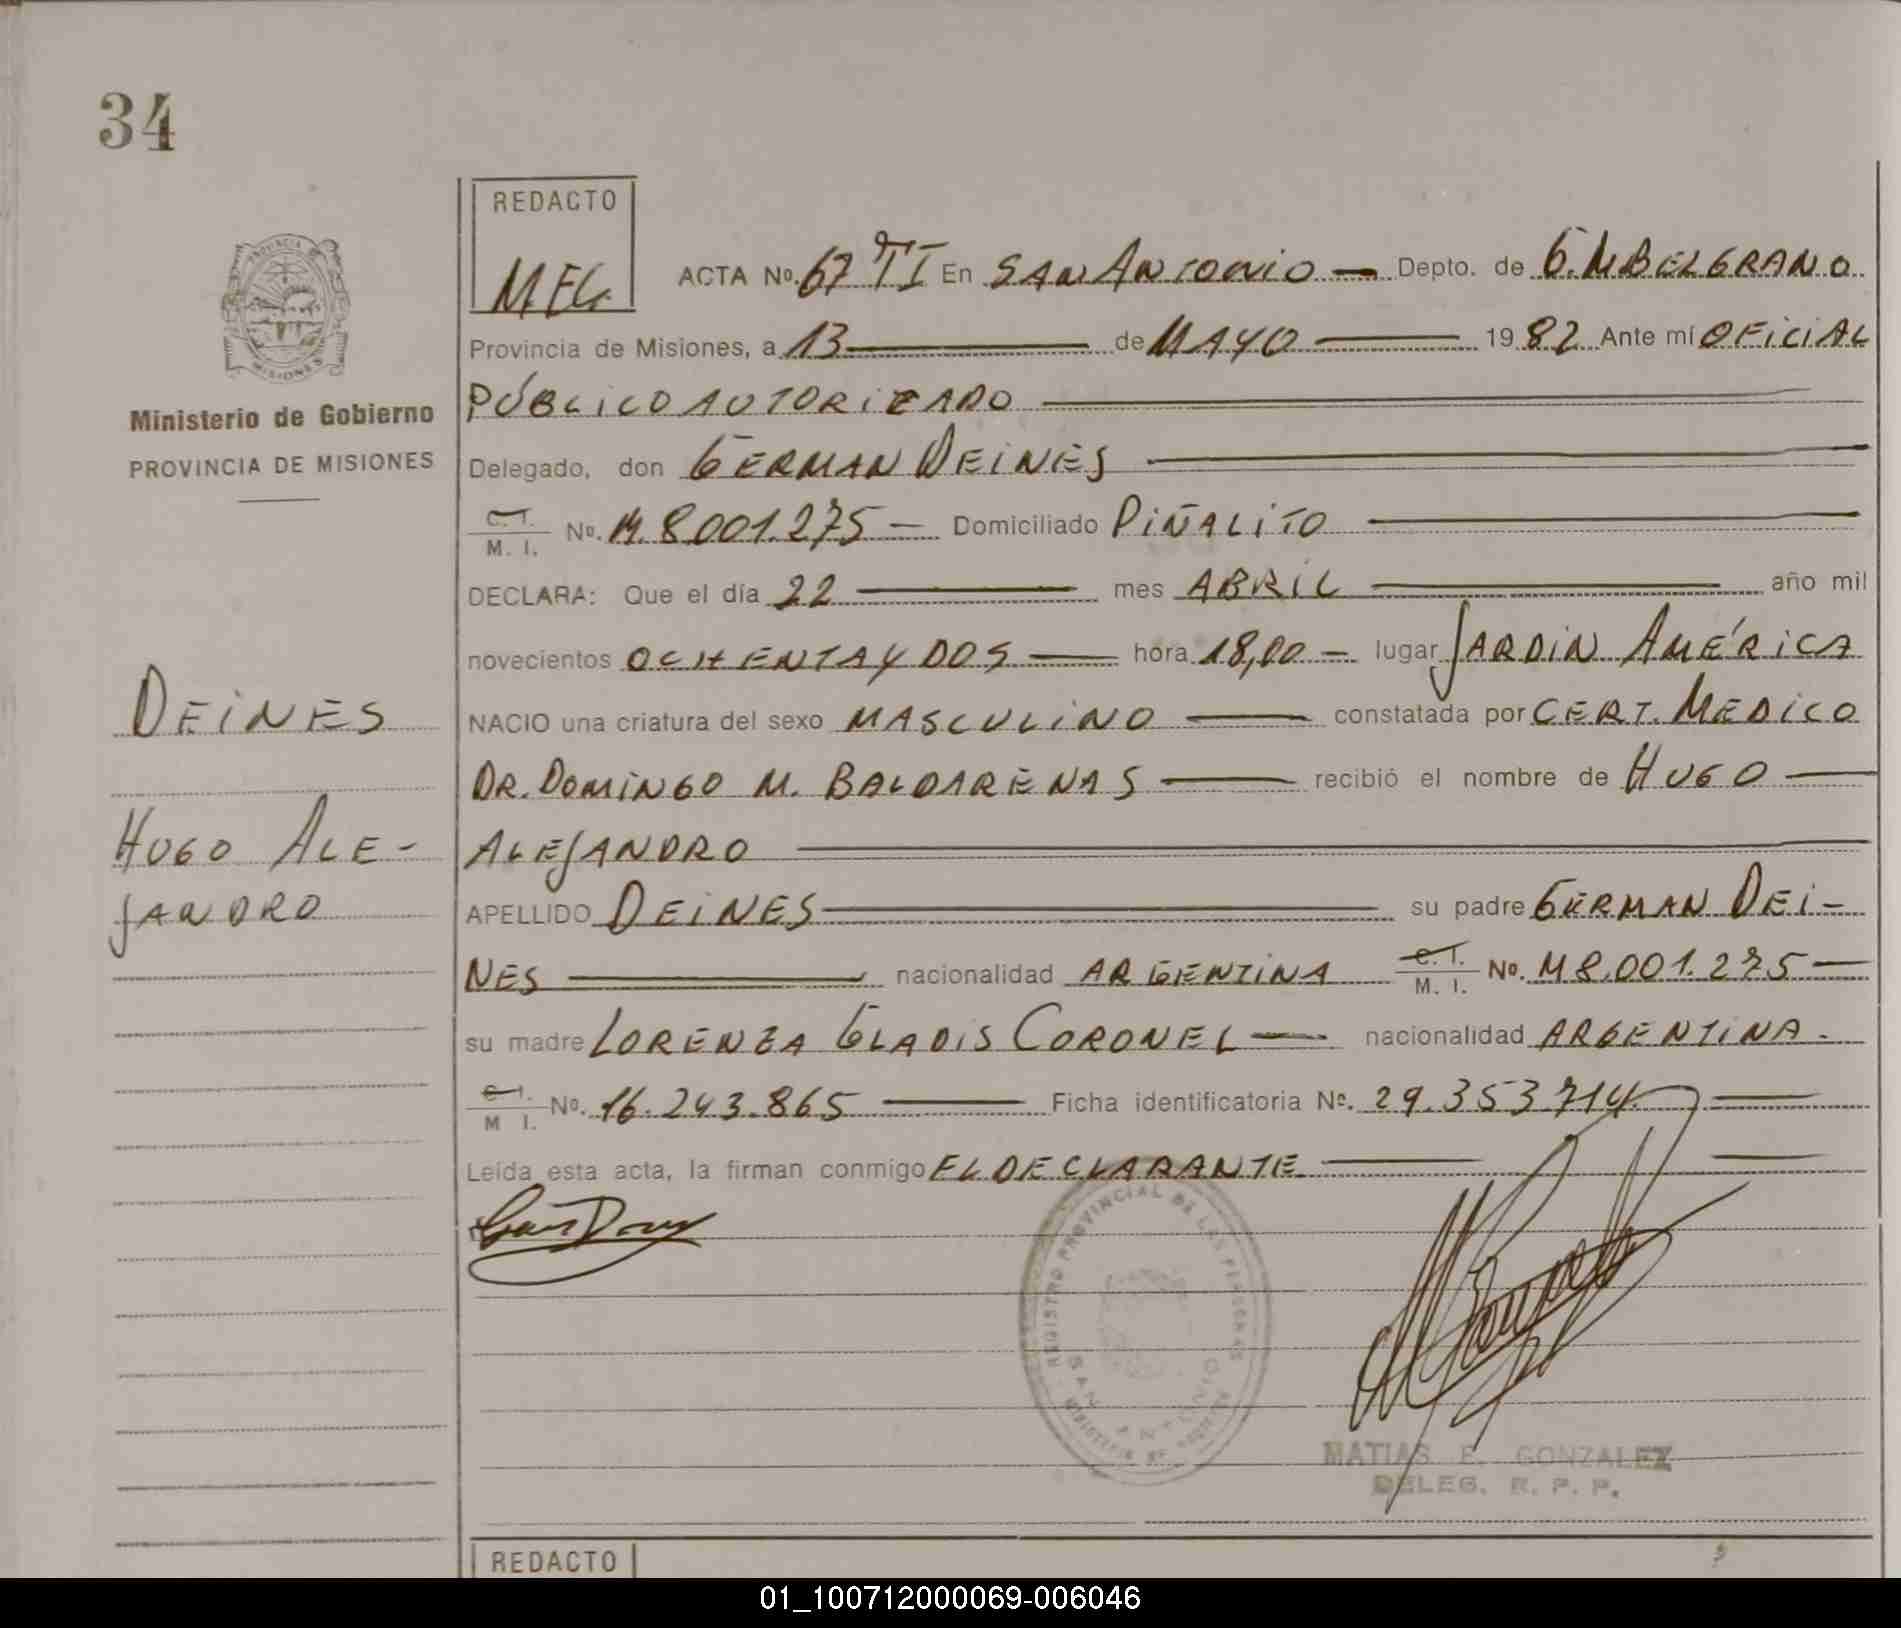 34
PROVINCIA DE
MISIONES
Ministerio de Gobierno
PROVINCIA DE MISIONES
DEINES
HUGO ALE-
JANDRO
REDACTO
MEG
ACTA No. 67 TI En SAN ANTONIO — Depto. de G. M BELGRANO
Provincia de Misiones, a 13 — de MAYO — 1982 Ante mí OFICIAL
PÚBLICO AUTORIZADO —
Delegado, don GERMAN DEINES —
C. I. / M. I. No. M. 8.001.275 — Domiciliado PIÑALITO —
DECLARA: Que el día 22 — mes ABRIL — año mil
novecientos OCHENTA Y DOS — hora 18,00 — lugar JARDIN AMÉRICA
NACIO una criatura del sexo MASCULINO — constatada por CERT. MEDICO
DR. DOMINGO M. BALDARENAS — recibió el nombre de HUGO —
ALEJANDRO —
APELLIDO DEINES — su padre GERMAN DEI-
NES — nacionalidad ARGENTINA C. I. / M. I. No. M 8.001.275 —
su madre LORENZA GLADIS CORONEL — nacionalidad ARGENTINA -
C. I. / M I. No. 16.243.865 — Ficha identificatoria No. 29.353.714 —
Leída esta acta, la firman conmigo EL DECLARANTE —
REGISTRO PROVINCIAL DE LAS PERSONAS
SAN ANTONIO
MATIAS E. GONZALEZ
DELEG. R. P. P.
REDACTO
01_100712000069-006046